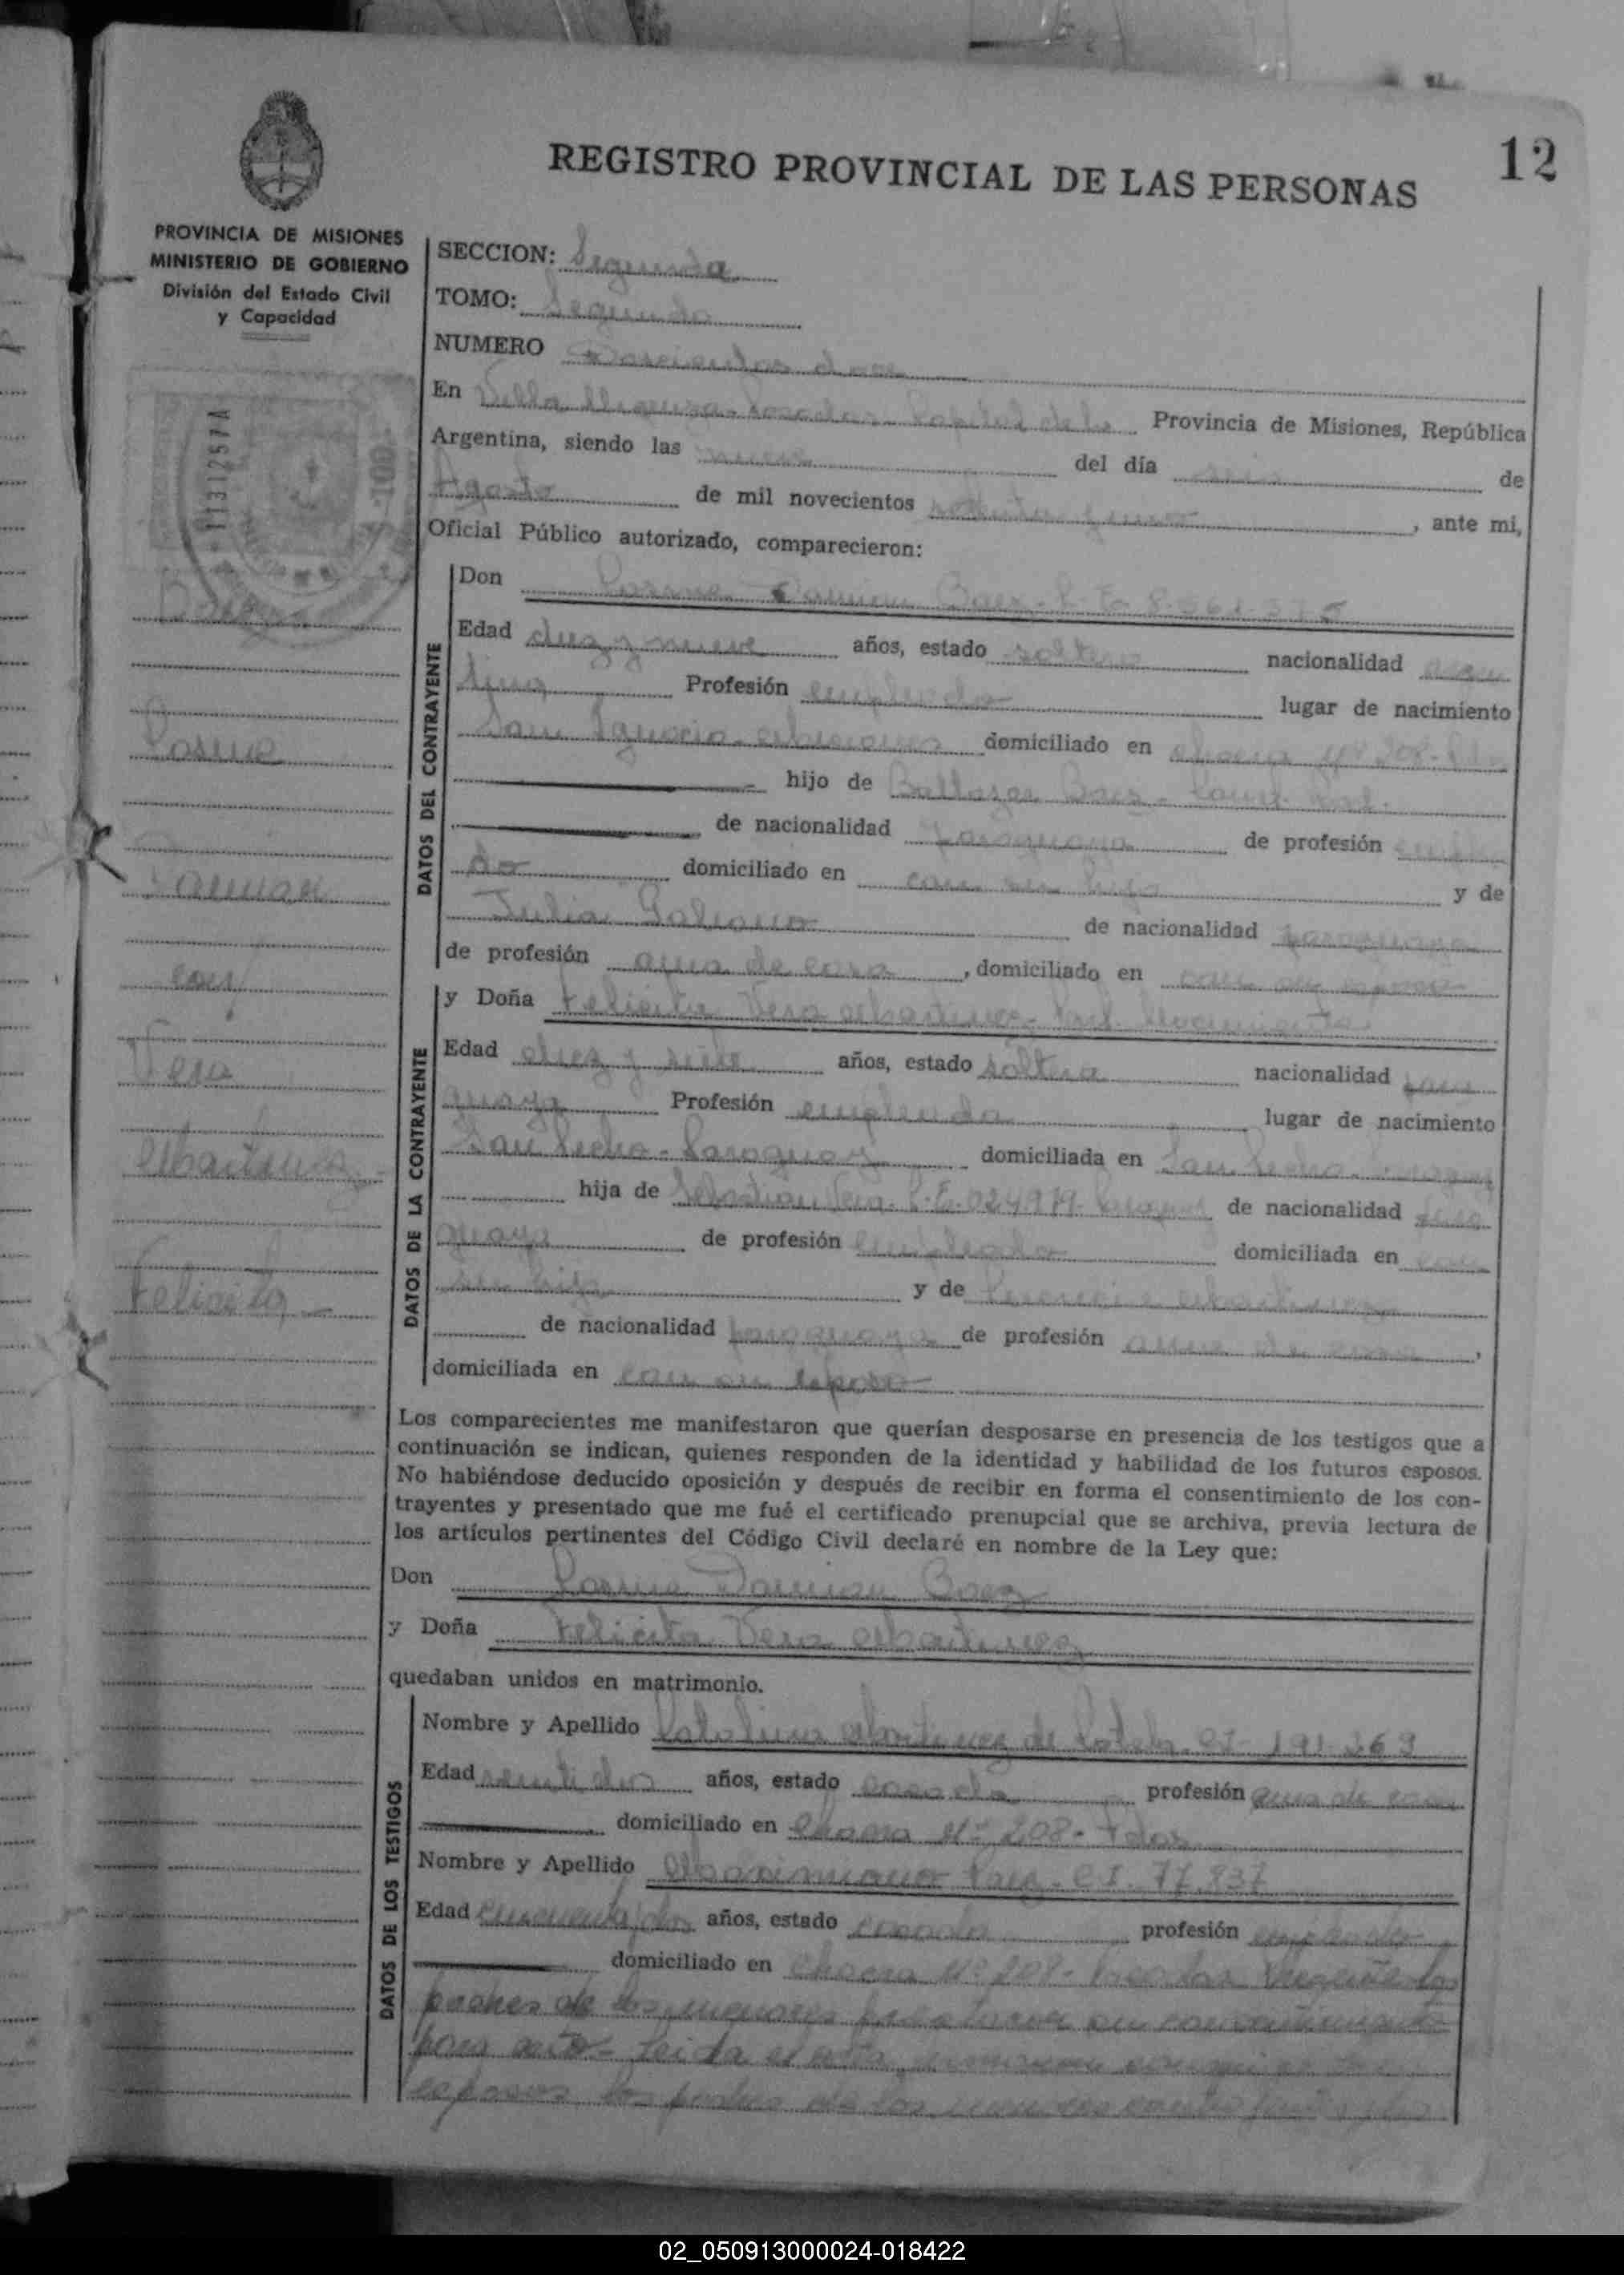 12
REGISTRO PROVINCIAL DE LAS PERSONAS
PROVINCIA DE MISIONES
MINISTERIO DE GOBIERNO
División del Estado Civil
y Capacidad
1131257A
100
Baez
Cosme
Damian
con
Vera
Martinez
Felicita
SECCION: Segunda
TOMO: Segundo
NUMERO Doscientos doce
En Villa Urquiza - Posadas - Capital de la Provincia de Misiones, República
Argentina, siendo las nueve del día seis de
Agosto de mil novecientos , ante mi,
Oficial Público autorizado, comparecieron:
DATOS DEL CONTRAYENTE
Don Cosme Damian Baez - L. E. 8.361.375
Edad diez y nueve años, estado soltero nacionalidad argen
tina Profesión empleado lugar de nacimiento
San Ignacio - Misiones domiciliado en chacra Nº 208 - Pdas
hijo de Baltazar Baez -
de nacionalidad paraguaya de profesión emplea
do domiciliado en con su hijo y de
Julia Galeano de nacionalidad paraguaya
de profesión ama de casa , domiciliado en con su esposo
DATOS DE LA CONTRAYENTE
y Doña Felicita Vera Martinez - Nacimiento
Edad diez y siete años, estado soltera nacionalidad para
guaya Profesión empleada lugar de nacimiento
San Pedro - Paraguay domiciliada en San Pedro - Paraguay
hija de Sebastian Vera - C.I. 024974 - Paraguay de nacionalidad para
guaya de profesión empleado domiciliada en con
su hija y de Martinez
de nacionalidad paraguaya de profesión ama de casa ,
domiciliada en con su esposo
Los comparecientes me manifestaron que querían desposarse en presencia de los testigos que a
continuación se indican, quienes responden de la identidad y habilidad de los futuros esposos.
No habiéndose deducido oposición y después de recibir en forma el consentimiento de los con-
trayentes y presentado que me fué el certificado prenupcial que se archiva, previa lectura de
los artículos pertinentes del Código Civil declaré en nombre de la Ley que:
Don Cosme Damian Baez
y Doña Felicita Vera Martinez
quedaban unidos en matrimonio.
DATOS DE LOS TESTIGOS
Nombre y Apellido Catalina Martinez de CI- 191.263
Edad años, estado casada profesión ama de casa
domiciliado en Chacra Nº 208 - Pdas
Nombre y Apellido Maximiano - C.I. 77.837
Edad cincuenta y dos años, estado casado profesión empleado
domiciliado en chacra Nº 208 - Posadas
padres de los menores prestaron su consentimiento
para acto - Leida el acta, conmigo
esposos los padres de los menores
02_050913000024-018422